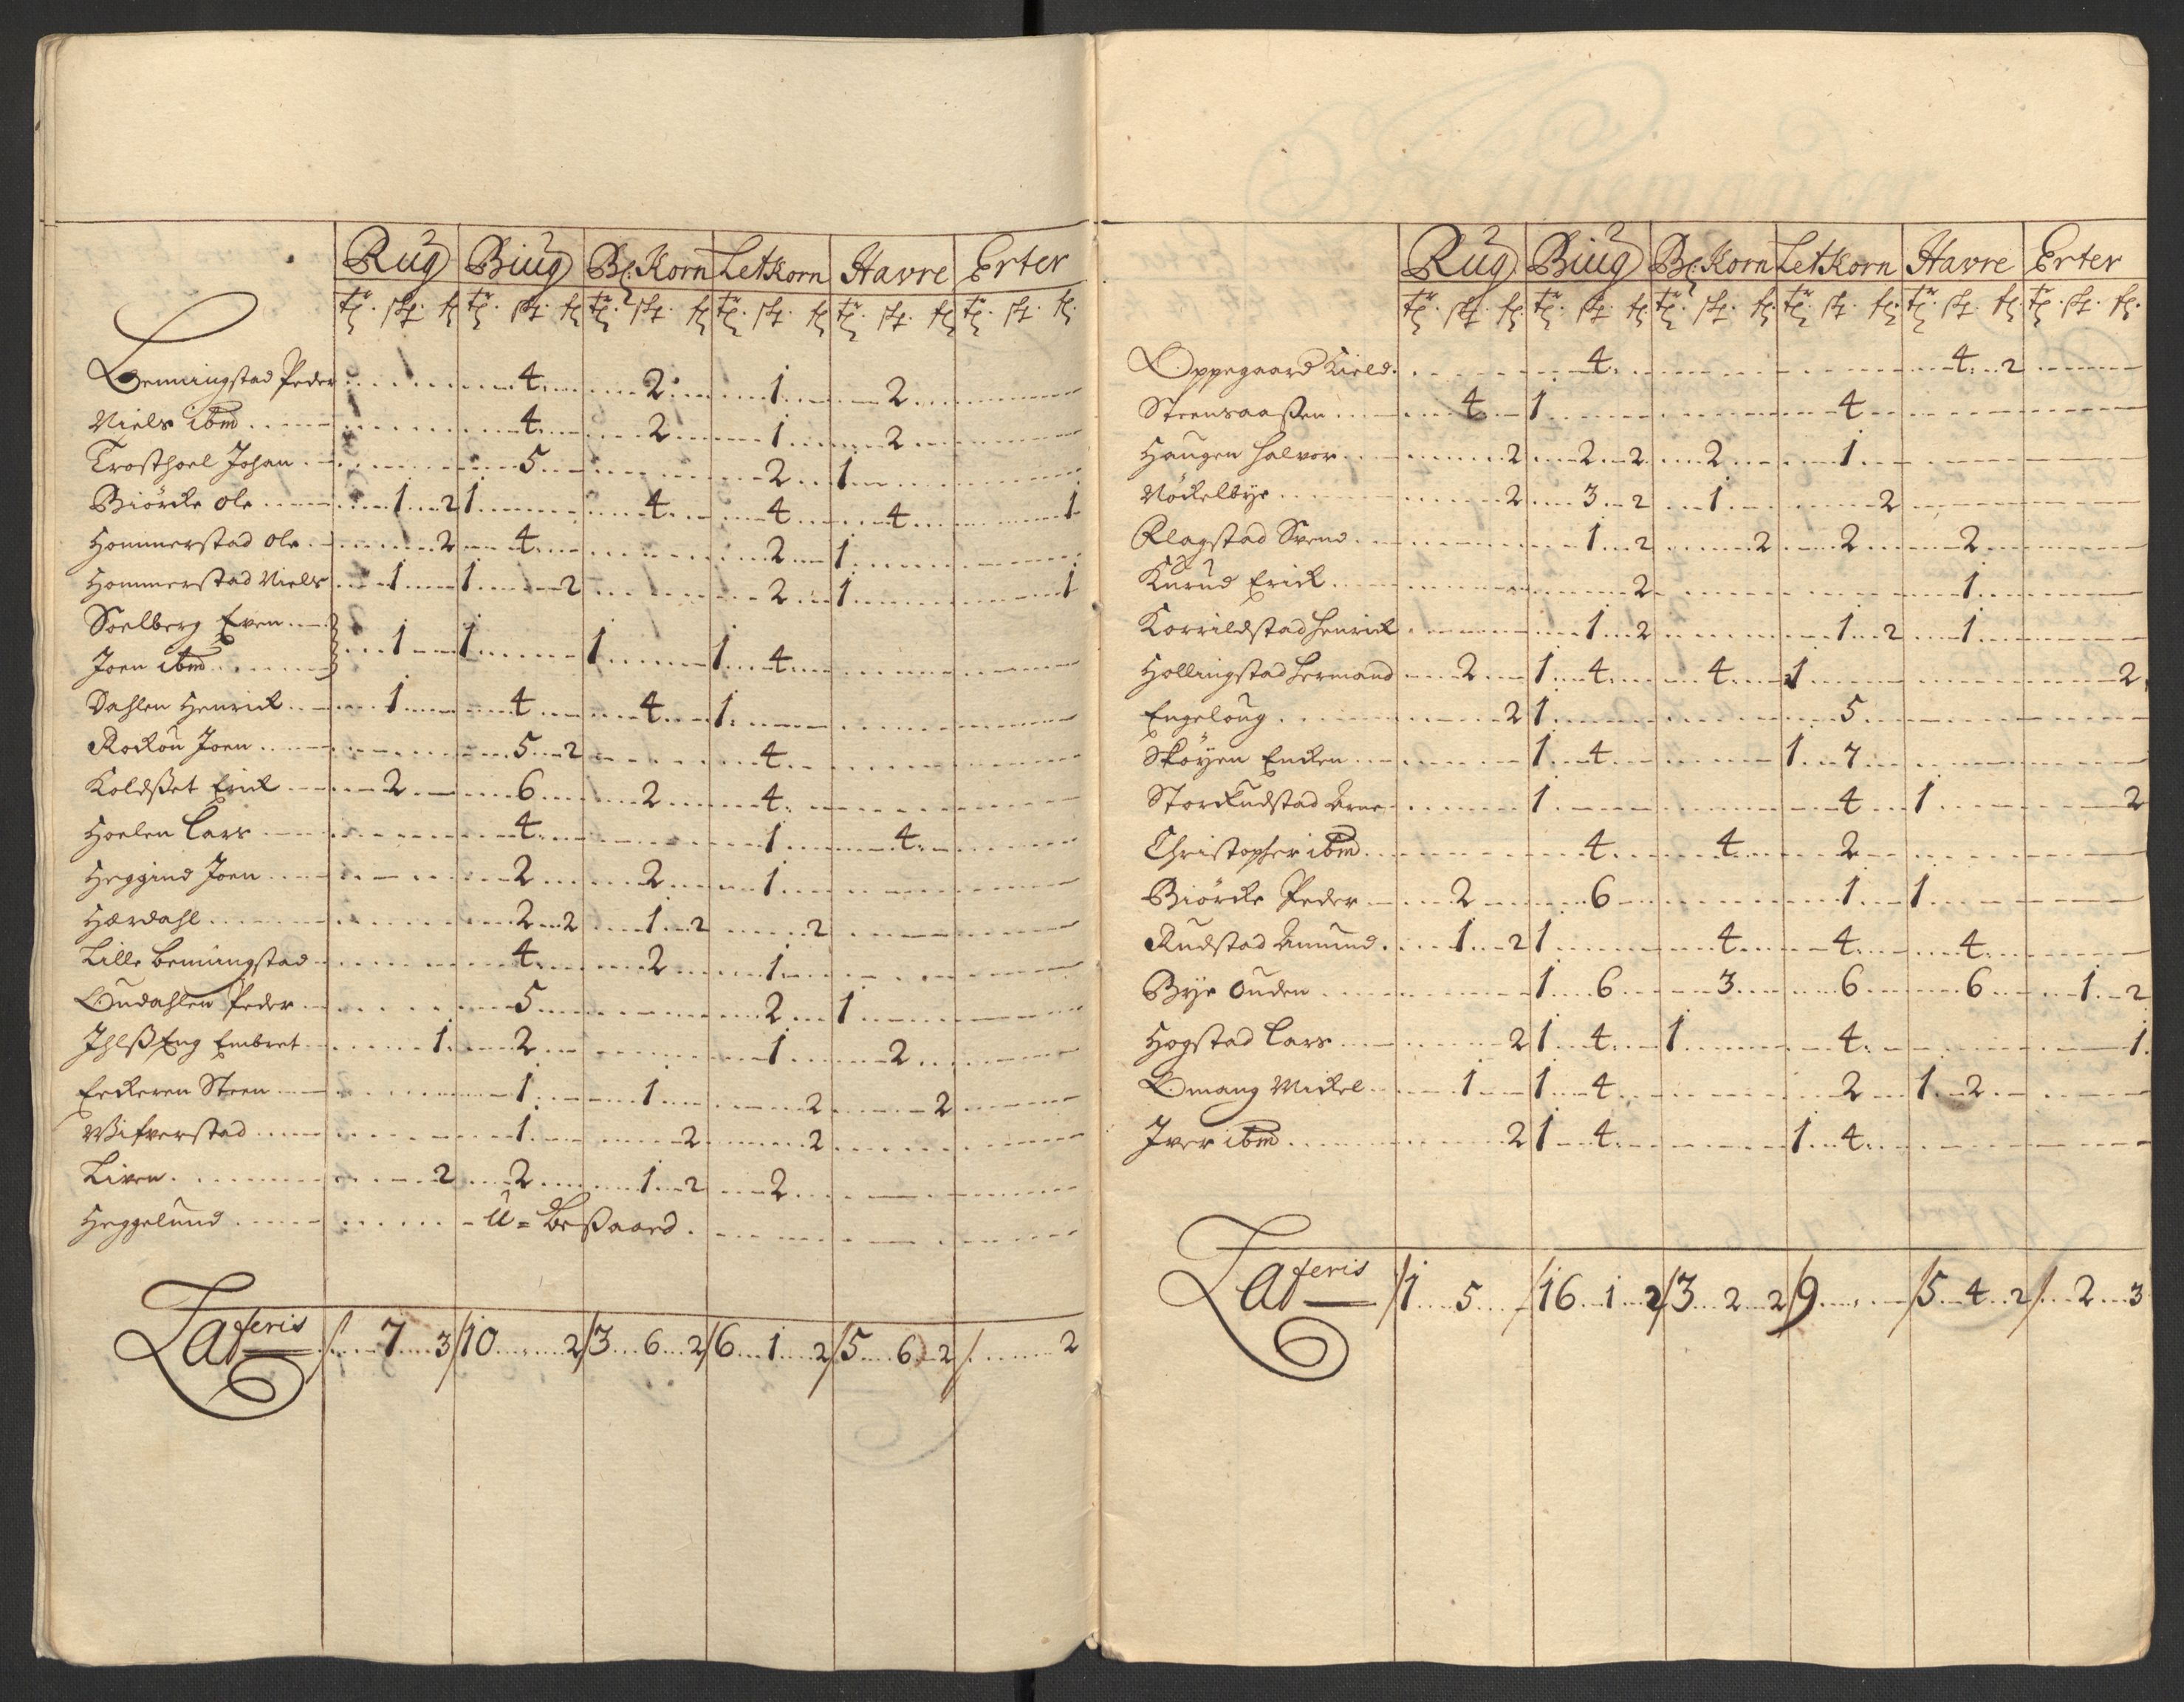 Rug Biug Bl: Korn Letkorn Havre Erter
tr. sk. f. tr. sk. f. tr. sk. f. tr. sk. f. tr. sk. f. tr. sk. f.
Benningstad Peder 4 2 1 2
Niels ibm 4 2 1 2
Trosthoel Johan 5 2 1
Biörcke Ole 1 2 1 4 4 4 1
Hommerstad Ole 2 4 2 1
Hommerstad Niels 1 1 2 2 1 1
Soelberg Even
Joen ibm 1 1 1 1 4
Dahlen Henrick 1 4 4 1
Rockou Joen 5 2 4
Koldset Erick 2 6 2 4
Hoelen Lars 4 1 4
Heggind Joen 2 2 1
Hærdahl 2 2 1 2 2
Lille Benningstad 4 2 1
Oudahlen Peder 5 2 1
Ihlß Eng Embret 1 2 1 2
Eeckeren Steen 1 1 2 2
Wifverstad 1 2 2
Liven 2 2 1 2 2
Heggelund U-Beßaaed
Lateris /. 7 3 /10 2 /3 6 2 /6 1 2 /5 6 2 /. 2
Rug Biug Bl: Korn Letkorn Havre Erter
tr. sk. f. tr. sk. f. tr. sk. f. tr. sk. f. tr. sk. f. tr. sk. f.
Oppegaard Kield 4 4 2
Steensaaßen 4 1 4
Haugen Halvor 2 2 2 2 1
Nöckelbye 2 3 2 1 2
Klagstad Svend 1 2 2 2 2
Kurud Erick 2 1
Korrildstad Henrick 1 2 1 2 1
Hollingstad Hermand 2 1 4 4 1 2
Engeloug 2 1 5
Sköyen Encken 1 4 1 7
Storckudstad Arne 1 4 1 2
Christopher ibm 4 4 2
Biörcke Peder 2 6 1 1
Rudstad Amund 1 2 1 4 4 4
Bye Ouden 1 6 3 6 6 1 2
Hogstad Lars 2 1 4 1 4 1
Omang Mickel 1 1 4 2 1 2
Iver ibm 2 1 4 1 4
Lateris /1 5 /16 1 2 /3 2 2 /9 /5 4 2 /. 2 3